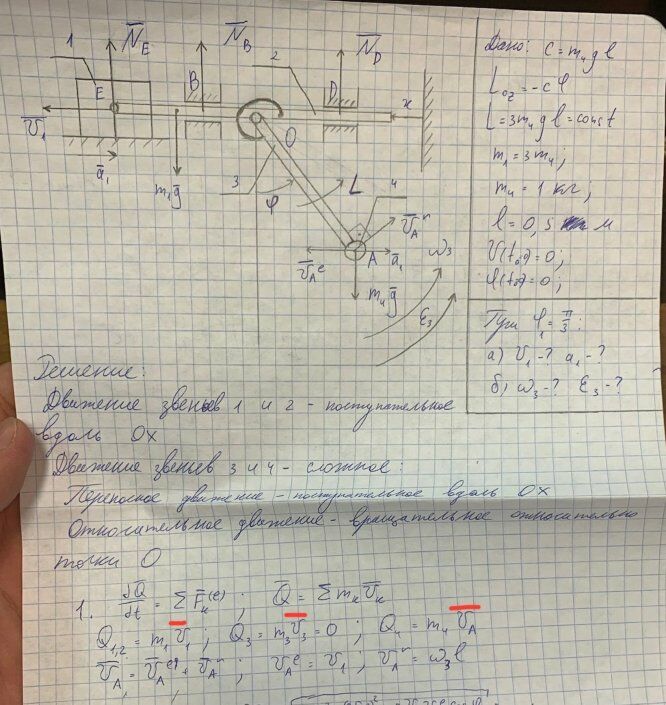 1 N̅_E N̅_B 2 N̅_D
E B D x
V̅₁ O
a̅₁ 3 L 4
m₁g̅ φ V̅_A^r
V̅_A^e A a̅₁ ω₃
m₄g̅ ε₃
Дано: c = m₄gl
L_oz = -cφ
L = 3m₄gl = const
m₁ = 3m₄;
m₄ = 1 кг;
l = 0,5 м
V(t₀) = 0;
φ(t₀) = 0;
При φ₁ = π/3:
а) V₁ - ? a₁ - ?
б) ω₃ - ? ε₃ - ?
Решение:
Движение звеньев 1 и 2 - поступательное
вдоль OX
Движение звеньев 3 и 4 - сложное:
Переносное движение - поступательное вдоль OX
Относительное движение - вращательное относительно
точки O
1. dQ̅/dt = ∑F̅ₖ⁽ᵉ⁾; Q̅ = ∑mₖV̅ₖ
Q₁,₂ = m₁V̅₁; Q₃ = m₃V̅₃ = 0; Q₄ = m₄V̅_A
V̅_A = V̅_A^e + V̅_A^r; V_A^e = V₁; V_A^r = ω₃l